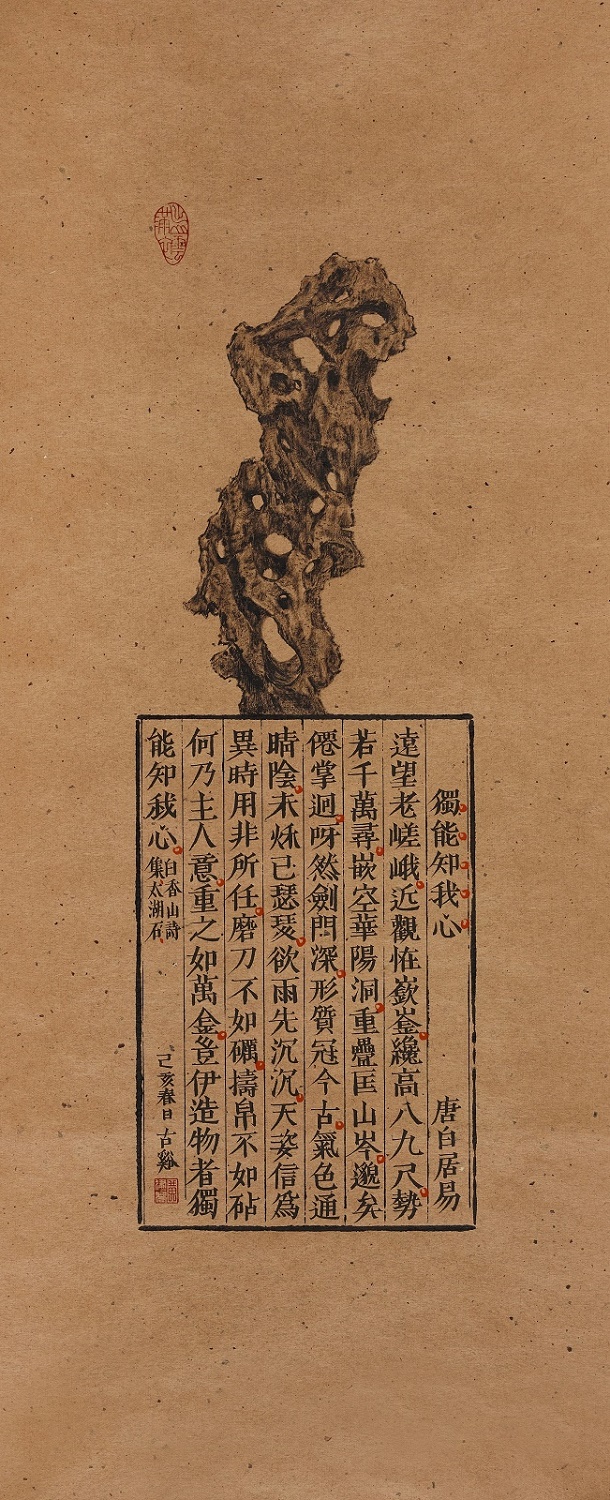 獨能知我心 唐白居易
遠望老嵯峨近觀恠嶔崟纔高八九尺勢
若千萬尋嵌空華陽洞重疊匡山岑邈矣
僊掌迥呀然劍門深形質冠今古氣色通
晴陰未秌已瑟瑟欲雨先沉沉天姿信爲
異時用非所任磨刀不如礪擣帛不如砧
何乃主人意重之如萬金豈伊造物者獨
能知我心
白香山詩
集太湖石
己亥春日古谿